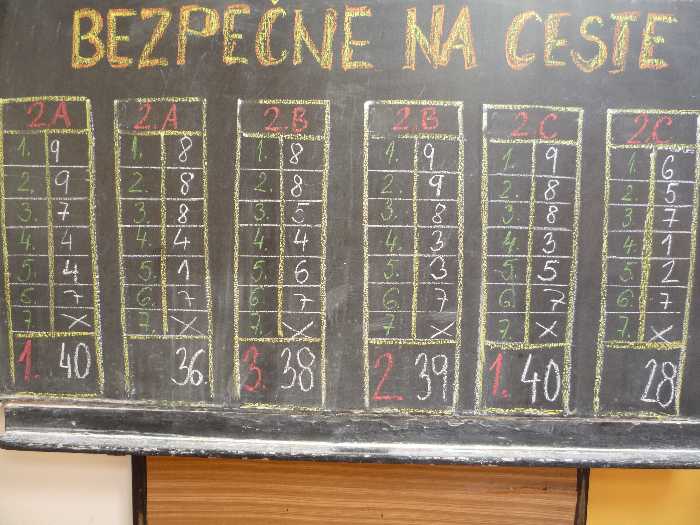 BEZPEČNE NA CESTE
2.A 2.A 2.B 2.B 2.C 2.C
1. 9 1. 8 1. 8 1. 9 1. 9 1. 6
2. 9 2. 8 2. 8 2. 9 2. 8 2. 5
3. 7 3. 8 3. 5 3. 8 3. 8 3. 7
4. 4 4. 4 4. 4 4. 3 4. 3 4. 1
5. 4 5. 1 5. 6 5. 3 5. 5 5. 2
6. 7 6. 7 6. 7 6. 7 6. 7 6. 7
7. x 7. x 7. x 7. x 7. x 7. x
1. 40 36. 3. 38 2. 39 1. 40 28